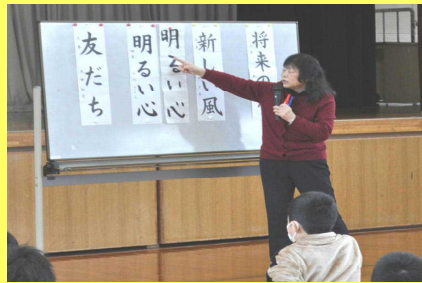 将来の
新しい風
明るい心
明るい心
友だち